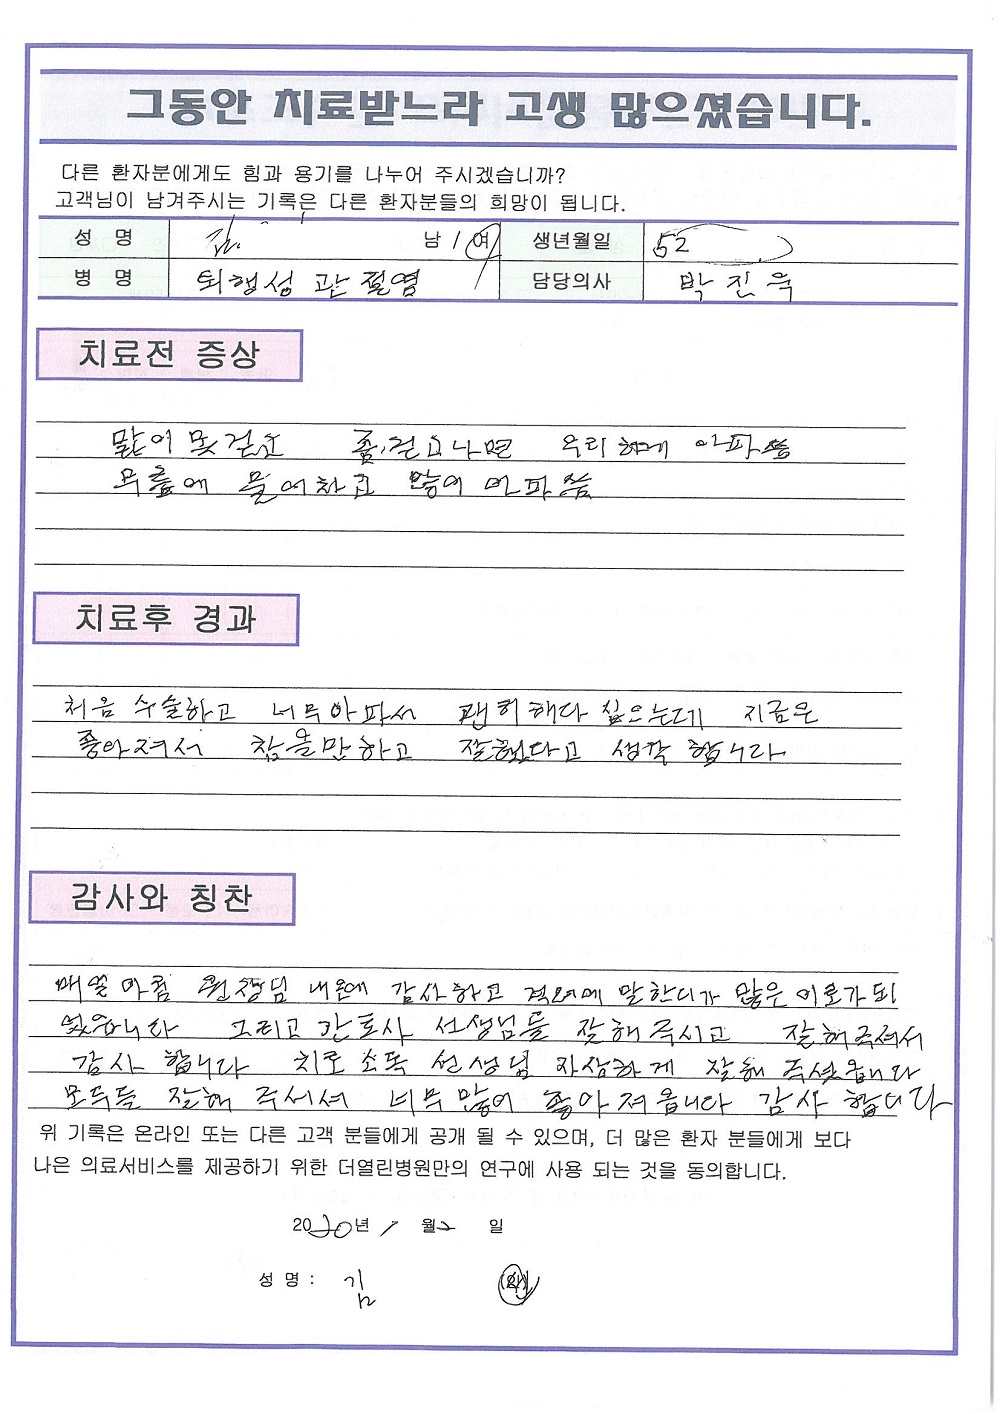 그동안 치료받느라 고생 많으셨습니다.
다른 환자분에게도 힘과 용기를 나누어 주시겠습니까?
고객님이 남겨주시는 기록은 다른 환자분들의 희망이 됩니다.
성 명 김 남 / 여 생년월일 52
병 명 퇴행성 관절염 담당의사 박진욱
치료전 증상
많이 못 걷고 좀, 걷고나면 우리하게 아파씀
무릎에 물이차고 많이 아파씀
치료후 경과
처음 수술하고 너무아파서 괜히해다 싶으는데 지금은
좋아져서 참을만하고 잘했다고 생각합니다
감사와 칭찬
매일 아침 원장님 내온에 감사하고 격려에 말한디가 많은 위로가 되
었습니다 그리고 간호사 선생님들 잘해주시고 잘해주셔서
감사합니다 치료 소독 선생님 자상하게 잘해 주셧읍니다
모두들 잘해 주세셔 너무 많이 좋아져읍니다 감사합니다
위 기록은 온라인 또는 다른 고객 분들에게 공개 될 수 있으며, 더 많은 환자 분들에게 보다
나은 의료서비스를 제공하기 위한 더열린병원만의 연구에 사용 되는 것을 동의합니다.
2020년 1 월 2 일
성 명 : 김 (인)